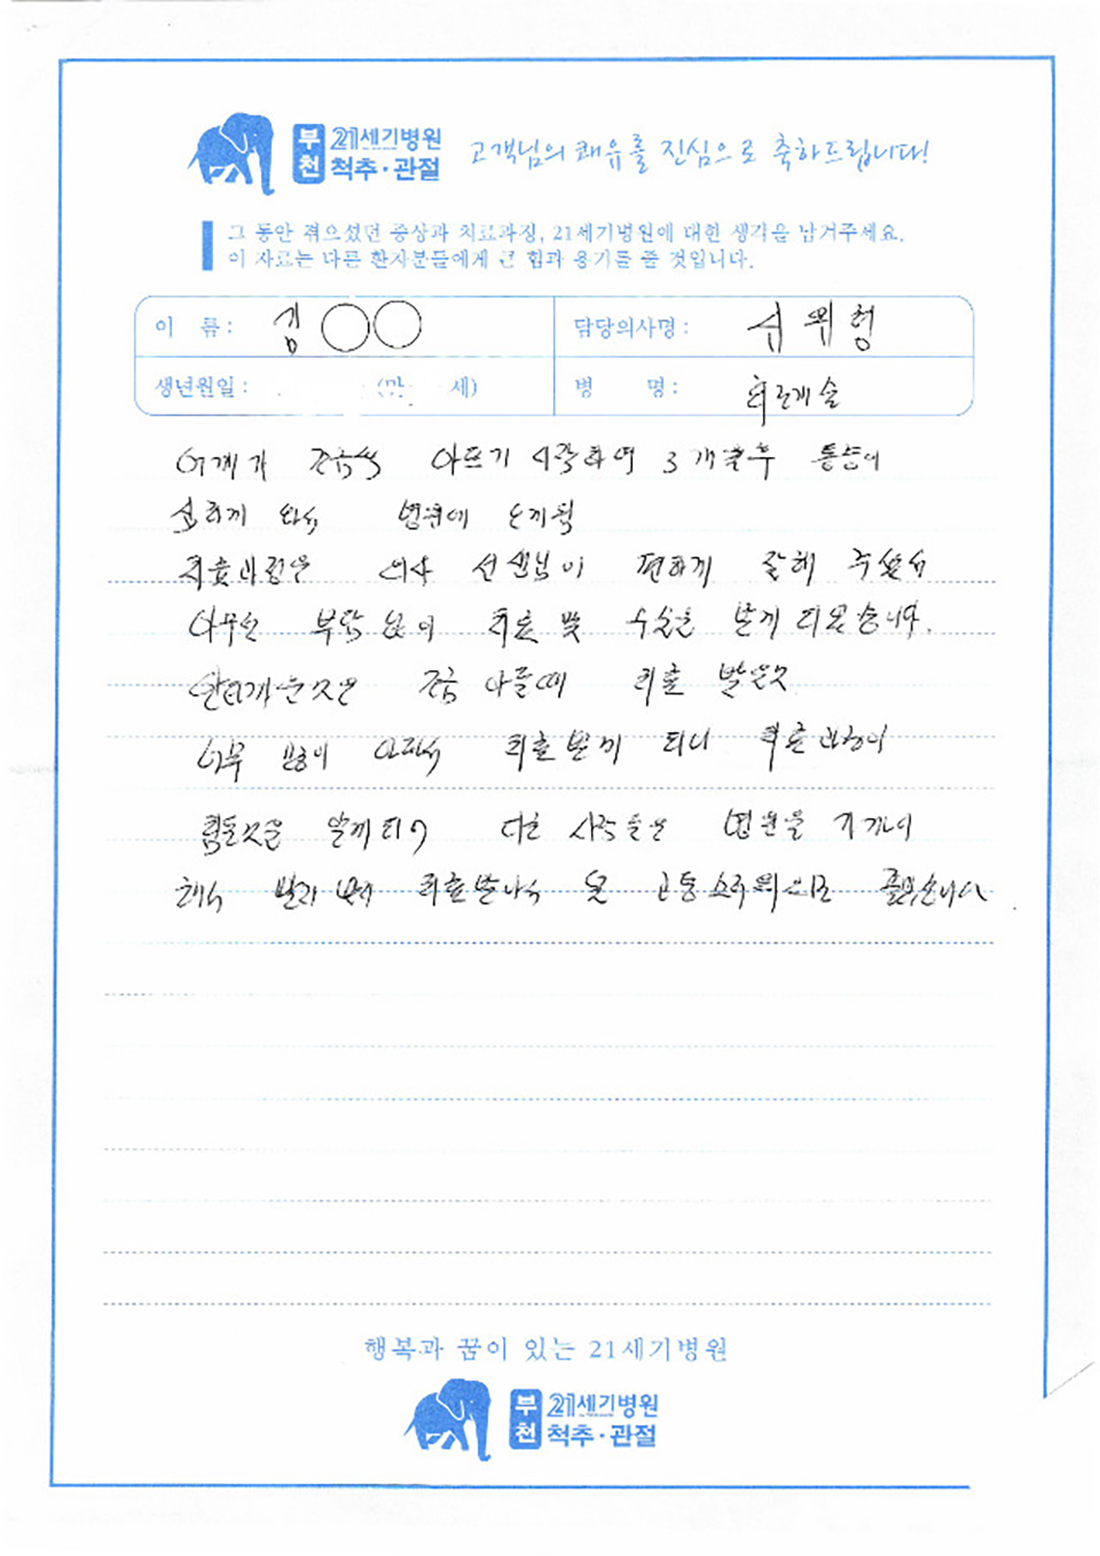 부천 21세기병원 척추·관절 고객님의 쾌유를 진심으로 축하드립니다!
그 동안 겪으셨던 증상과 치료과정, 21세기병원에 대한 생각을 남겨주세요.
이 자료는 다른 환자분들에게 큰 힘과 용기를 줄 것입니다.
이 름: 김○○ 담당의사명:
생년월일: (만 세) 병 명:
어깨가 조금씩 아프기 시작하여 3개월후 통증이
심하게 와서 병원에 오게됨
치료과정은 의사 선생님이 편하게 잘해 주셔서
아무런 부담 없이 치료 및 수술을 받게 되었습니다.
안타까운것은 조금 아플때 치료 받을것
너무 많이 아파서 치료받게 되니 치료과정이
힘든것을 알게되어 다른 사람들은 병원을 가까이
해서 빨리 먼저 치료받아서 덜 고통스러웠으면 좋겠습니다
행복과 꿈이 있는 21세기병원
부천 21세기병원 척추·관절